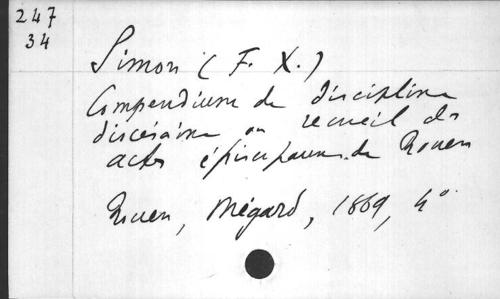 247
34
Simon (F. X.)
Compendium de discipline
diocésaine ou recueil des
actes épiscopaux de Rouen
Rouen, Mégard, 1869, 4°